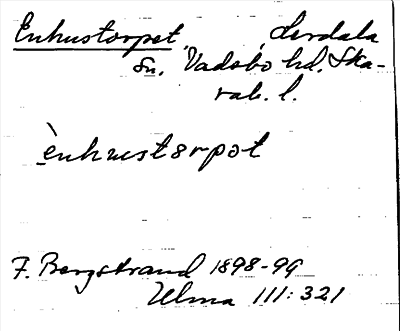 Enhustorpet, Lerdala
Sn. Vadsbo hd. Ska-
rab. l.
ènhustɷrpət
F. Bergstrand 1898-99
Ulma 111:321